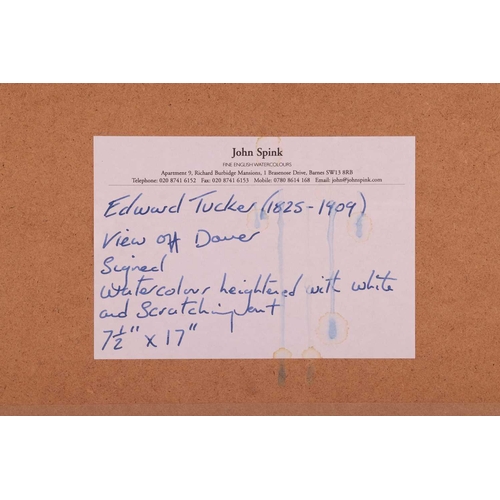 John Spink
FINE ENGLISH WATERCOLOURS
Apartment 9, Richard Burbidge Mansions, 1 Brasenose Drive, Barnes SW13 8RB
Telephone: 020 8741 6152 Fax: 020 8741 6153 Mobile: 0780 8614 168 Email: john@johnspink.com
Edward Tucker (1825-1909)
View off Dover
Signed
Watercolour heightened with white
and Scratching out
7½" x 17"